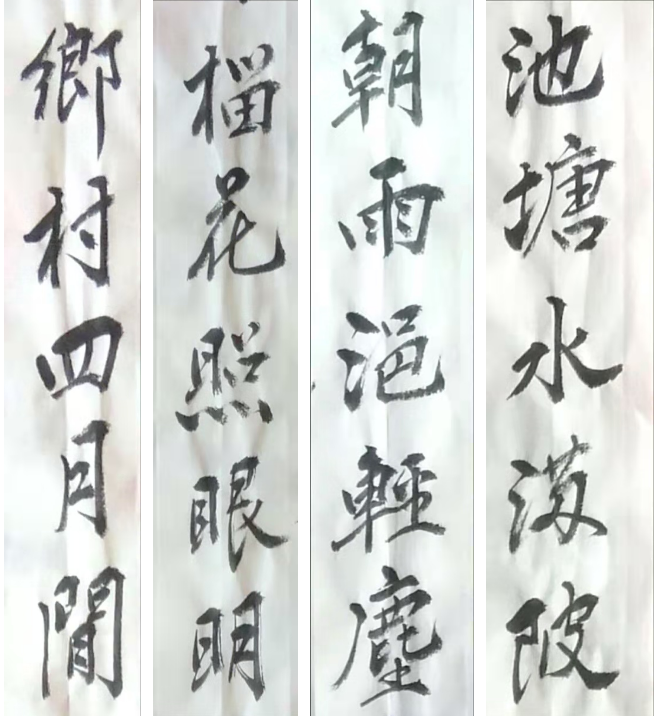 池塘水满陂
朝雨浥輕塵
榴花照眼明
鄉村四月閒